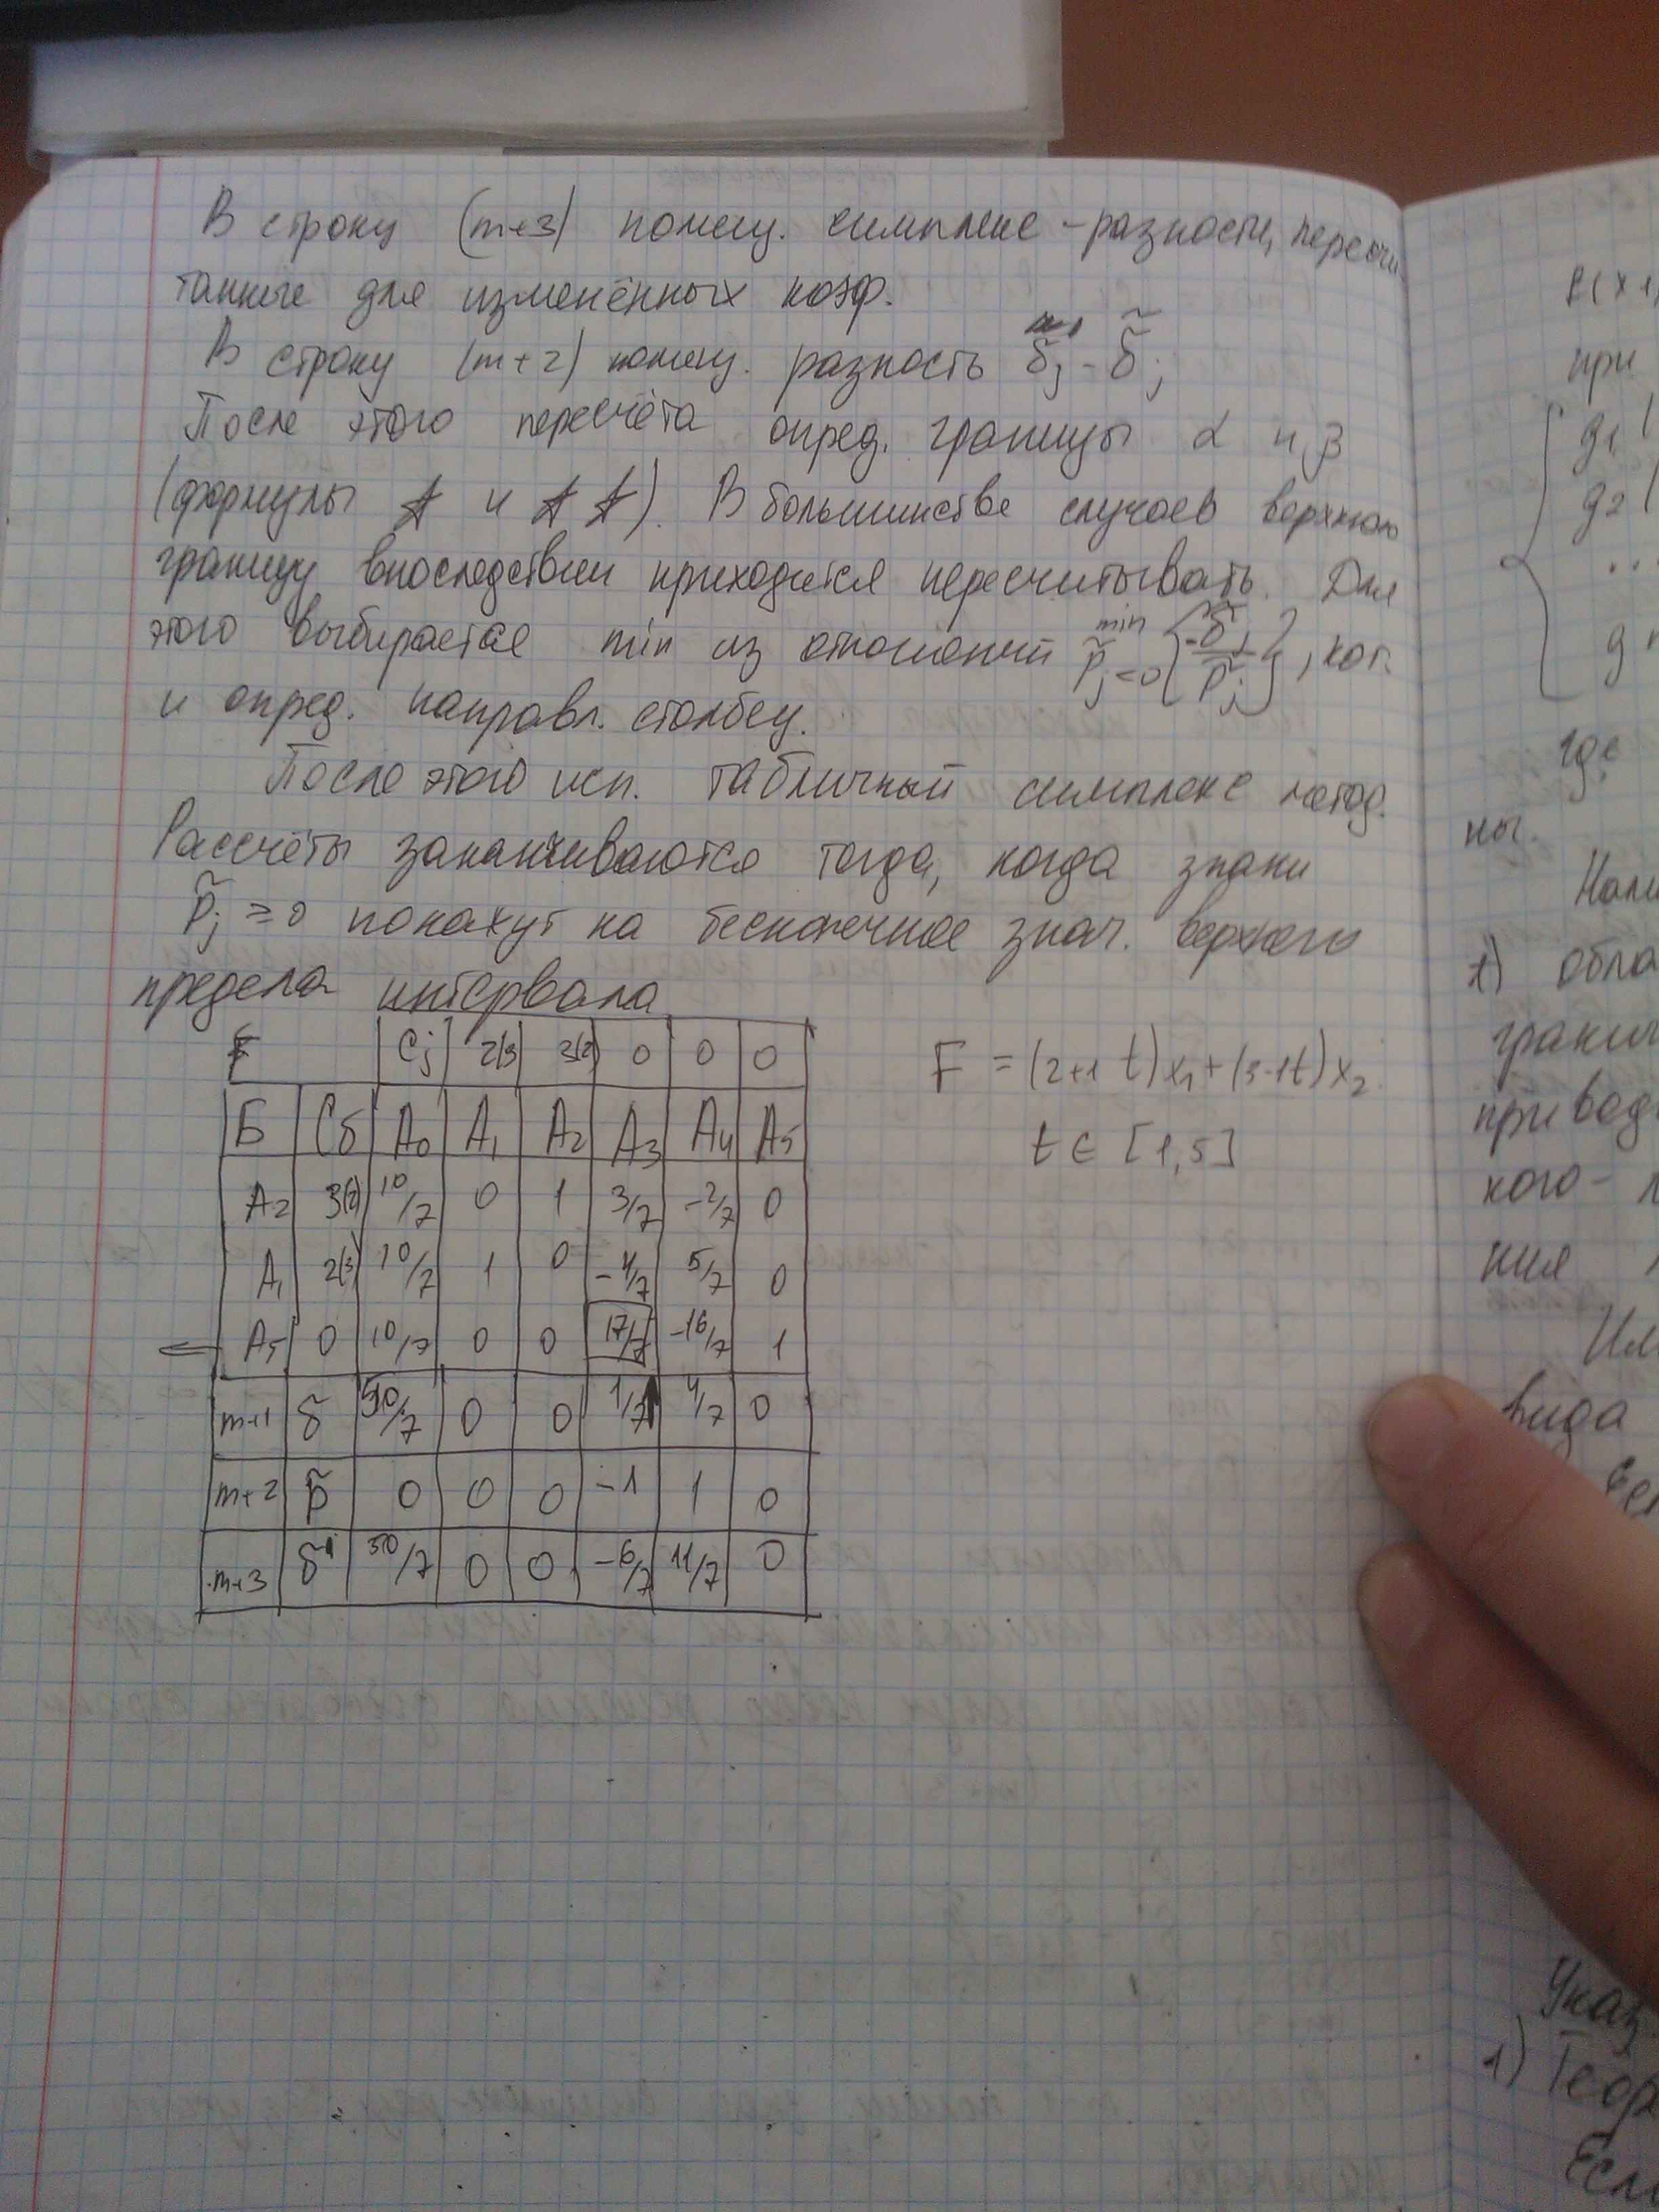 В строку (m+3) помещ. симплекс-разности, пересчи
танные для изменённых коэф.
В строку (m+2) помещ. разность δ̃j - δ̃j
После этого пересчёта опред. границы α и β
(формулы ☆ и ☆☆). В большинстве случаев верхнюю
границу впоследствии приходится пересчитывать. Для
этого выбирается min из отношений min p̃j<0 {-δ̃j/p̃j}, кот.
и опред. направл. столбец.
После этого исп. табличный симплекс метод.
Рассчёты заканчиваются тогда, когда знаки
p̃j ≥ 0 покажут на бесконечное знач. верхнего
предела интервала
Cj 2(3) 3(2) 0 0 0
Б Сб A0 A1 A2 A3 A4 A5
A2 3(2) 10/7 0 1 3/7 -2/7 0
A1 2(3) 10/7 1 0 -4/7 5/7 0
A5 0 10/7 0 0 17/7 -16/7 1
m+1 δ 50/7 0 0 1/7 4/7 0
m+2 p̃ 0 0 0 -1 1 0
m+3 δ̃ 50/7 0 0 -6/7 11/7 0
F = (2+1t)x1+(3-1t)x2
t ∈ [1,5]
F(x1
при
g1 (
g2 (
...
g
где
ны.
1) обла
гранич
привод
кого-
ния
вида
Указ
1) Теор
Если